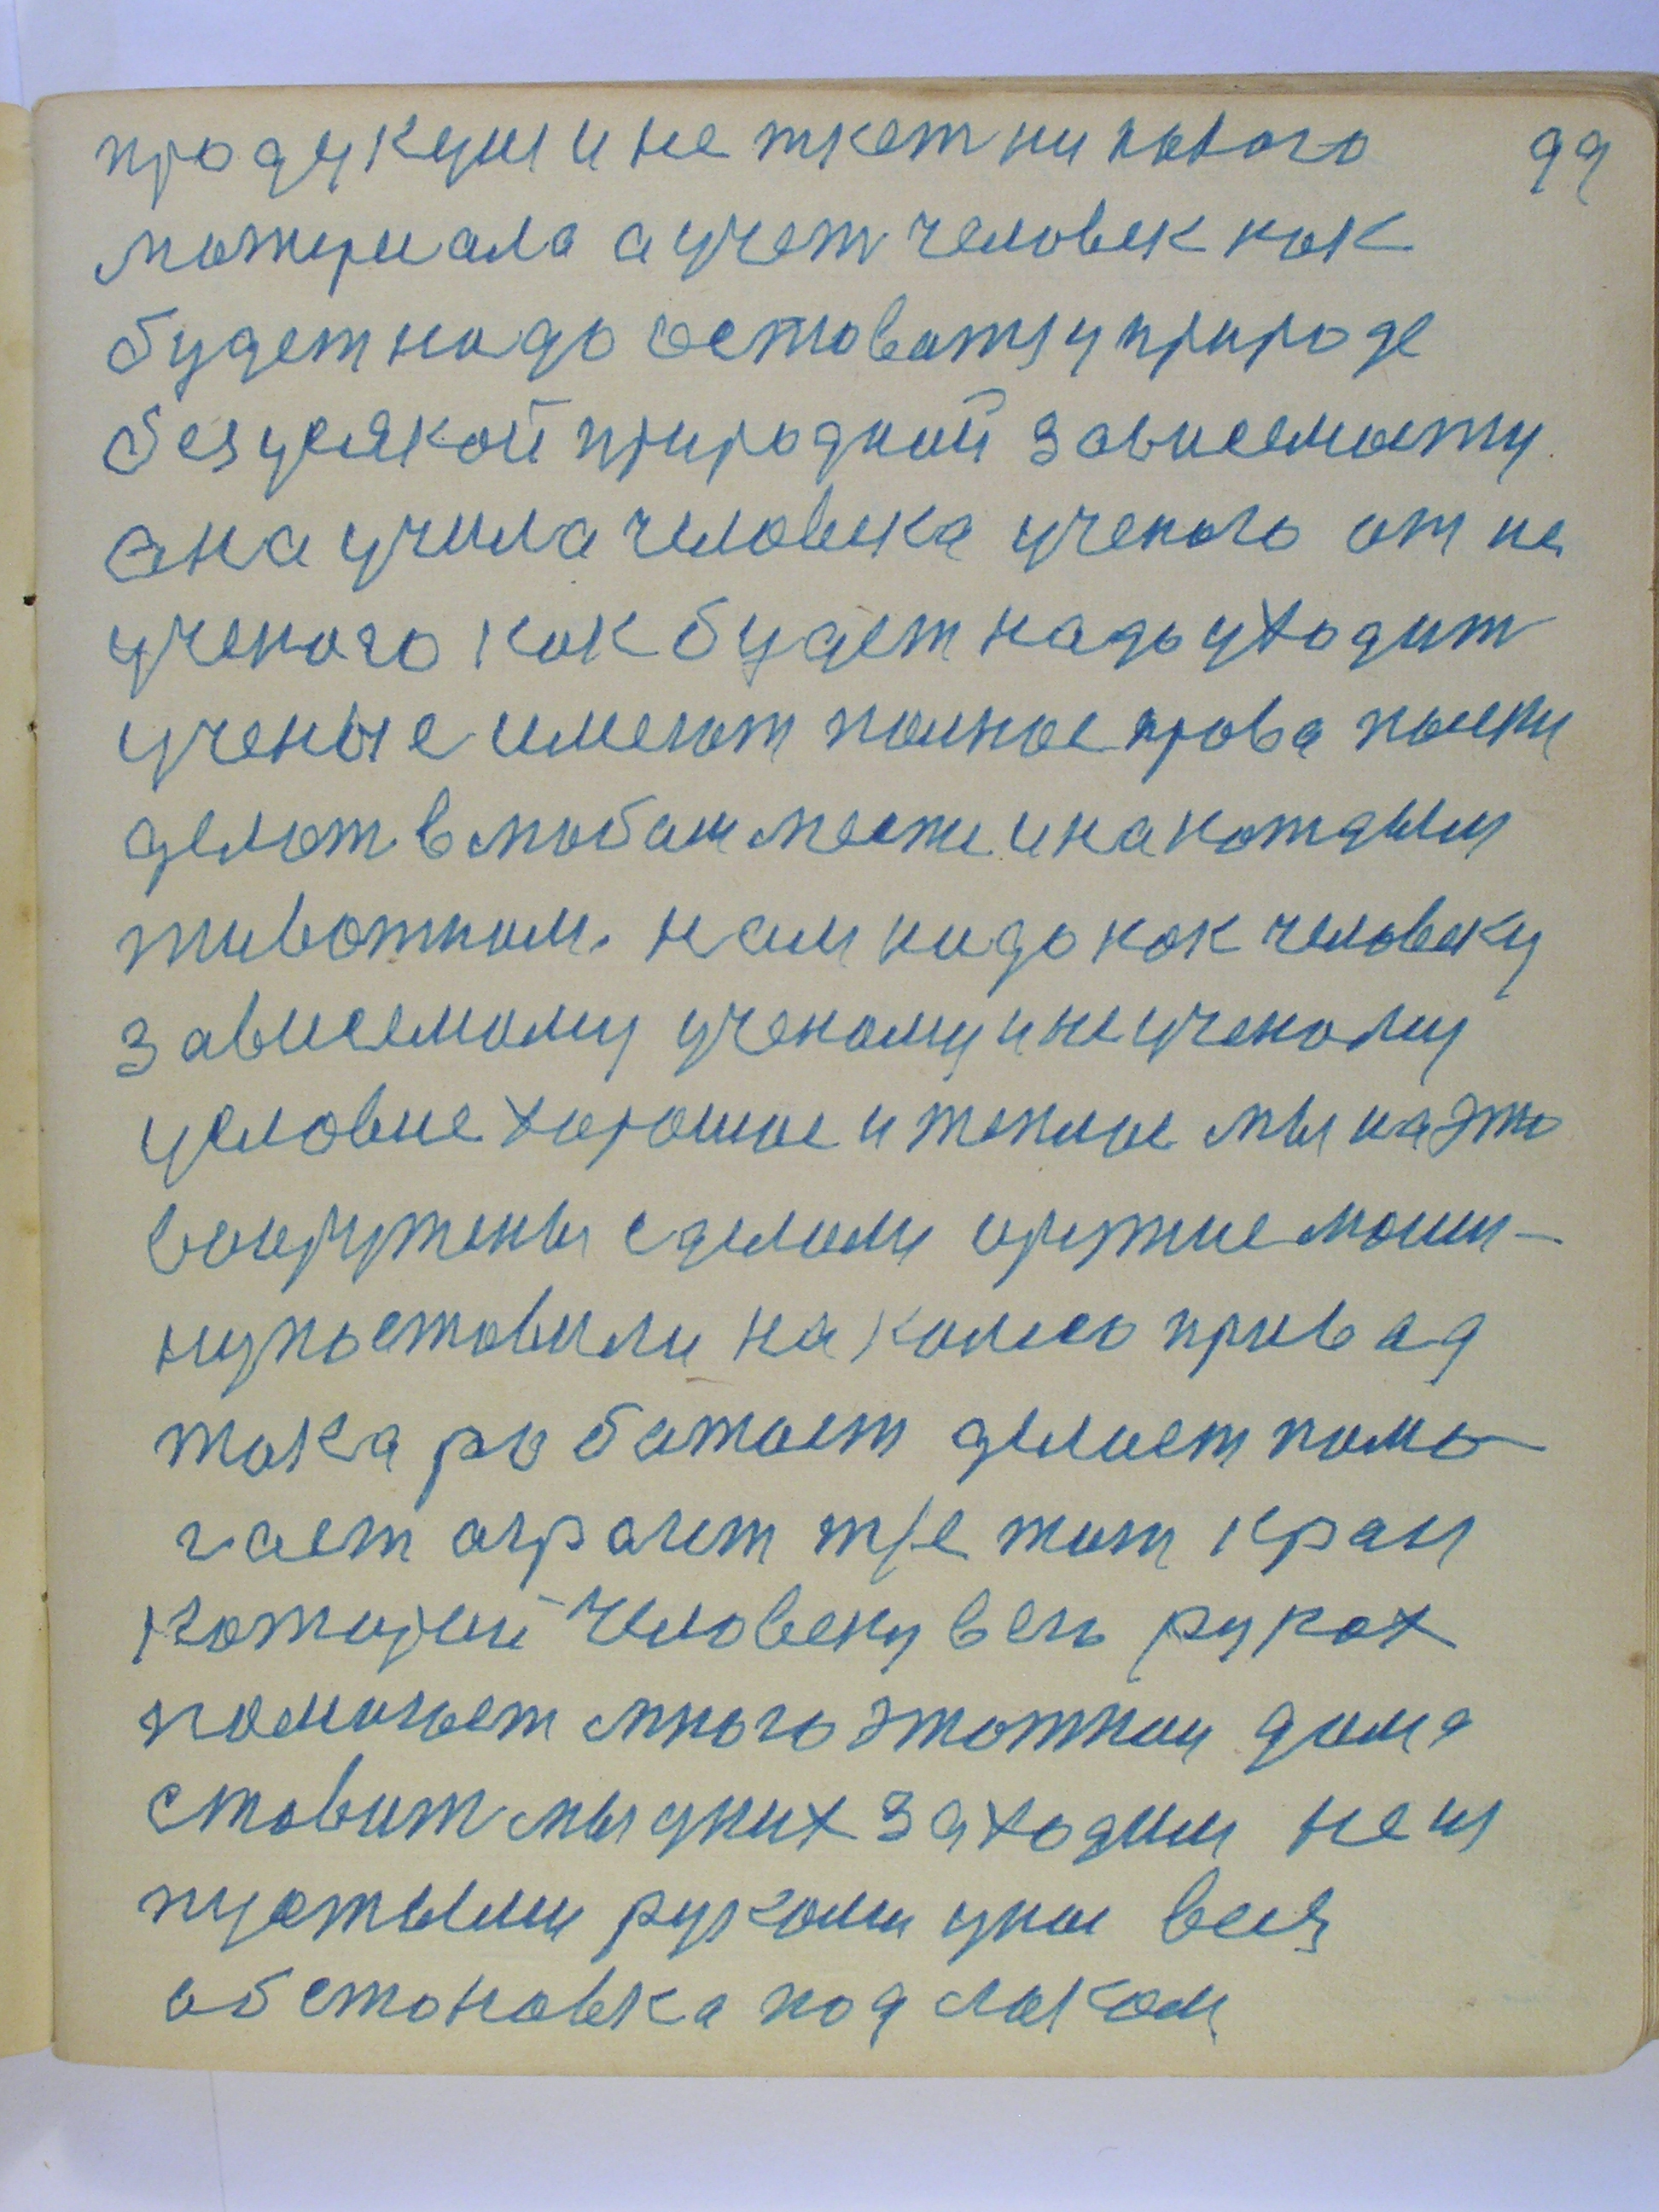 продукции и не ткет никакого 99
матириала а учет человек как
будет надо оставатся у природе
без усякой природной зависемости
она учила человека ученого от не
ученого как будет надо уходит
ученые имеют полное права поиски
делают в любом месте и на каждым
животным. нам надо как человеку
зависемому ученому и не ученому
условие хорошое и теплое мы на это
вооружены сделали оружие маши-
ну поставили на колесо привад
тока работает делает помо-
гает играет тже тот кран
который человеку в его руках
помогает многоэтажнии дома
ставит мы у них заходим не и
пустыми руками у нас вся
обстановка под лаком